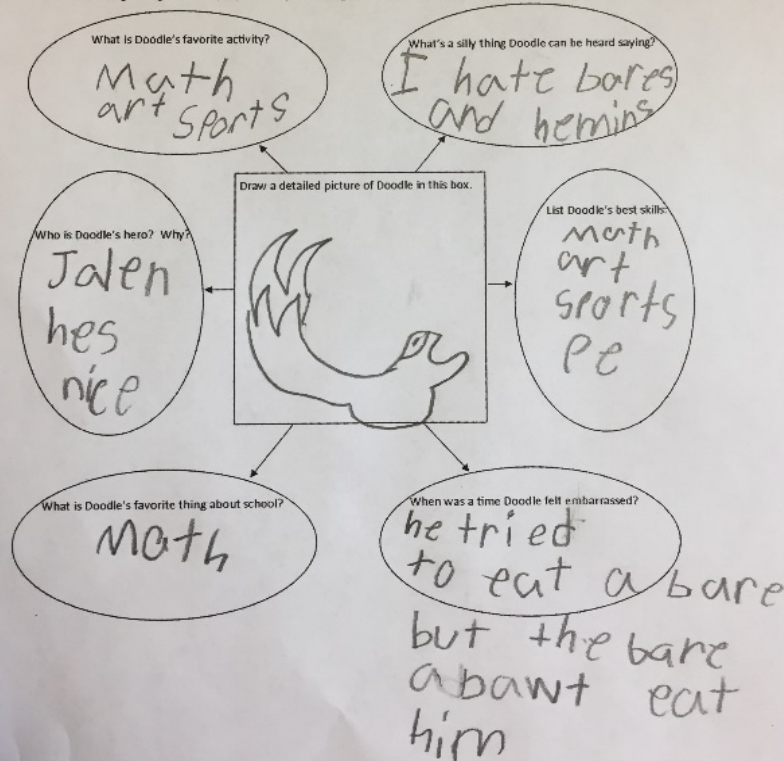 What is Doodle's favorite activity?
Math
art sports
What's a silly thing Doodle can be heard saying?
I hate bares
and hemins
Who is Doodle's hero? Why?
Jalen
hes
nice
Draw a detailed picture of Doodle in this box.
List Doodle's best skills:
Math
art
sports
Pe
What is Doodle's favorite thing about school?
Math
When was a time Doodle felt embarrassed?
he tried
to eat a bare
but the bare
abawt eat
him